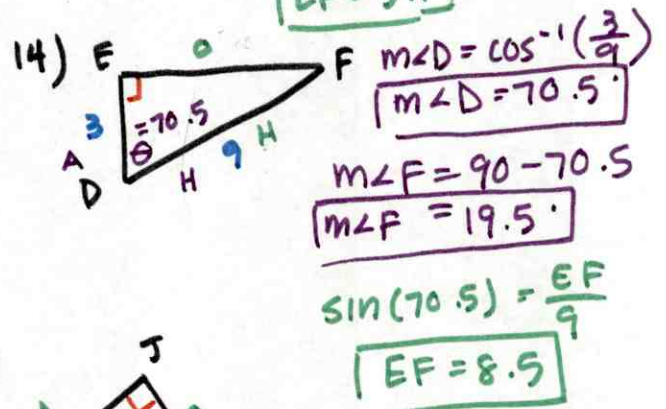 14) E O F
3 =70.5
θ
A D H 9 H
m∠D = cos⁻¹(3/9)
m∠D = 70.5°
m∠F = 90 - 70.5
m∠F = 19.5°
sin(70.5) = EF/9
EF = 8.5
J